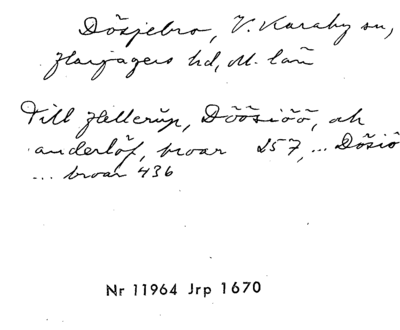 Dösjebro, V. Karaby sn,
Harjagers hd, M. län
Till Hillerup, Döösiöö, och
anderlöf, broar 257, ... Dösiö
... broar 436
Nr 11964 Jrp 1670